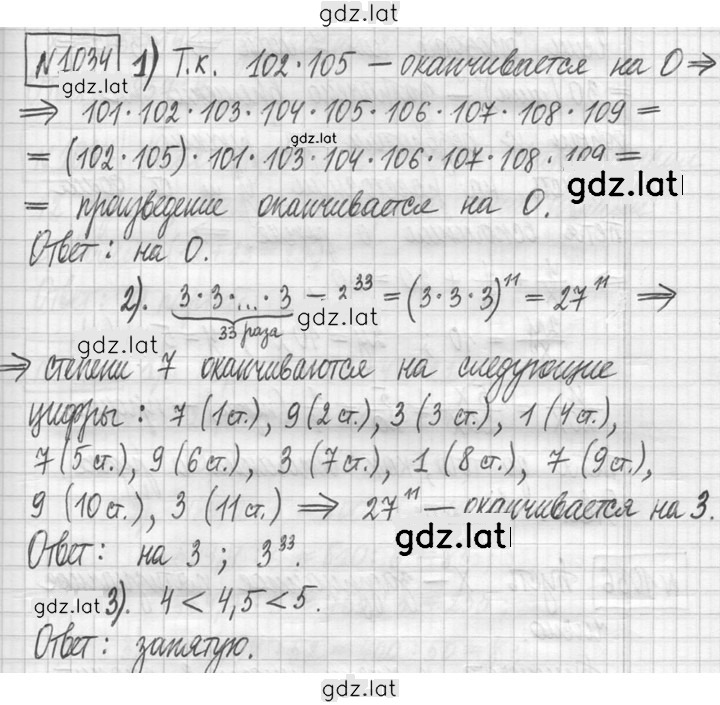 gdz.lat
№1034 1) Т.к. 102·105 – оканчивается на 0 ⇒
gdz.lat
⇒ 101·102·103·104·105·106·107·108·109 =
gdz.lat
= (102·105)·101·103·104·106·107·108·109 =
gdz.lat
= произведение оканчивается на 0.
Ответ: на 0.
2). 3·3·...·3 – 2³³ = (3·3·3)¹¹ = 27¹¹ ⇒
33 раза
gdz.lat
gdz.lat
⇒ степени 7 оканчиваются на следующие
цифры: 7 (1 ст.), 9 (2 ст.), 3 (3 ст.), 1 (4 ст.),
7 (5 ст.), 9 (6 ст.), 3 (7 ст.), 1 (8 ст.), 7 (9 ст.),
9 (10 ст.), 3 (11 ст.) ⇒ 27¹¹ – оканчивается на 3.
gdz.lat
Ответ: на 3; 3³³.
gdz.lat 3). 4 < 4,5 < 5.
Ответ: запятую.
gdz.lat